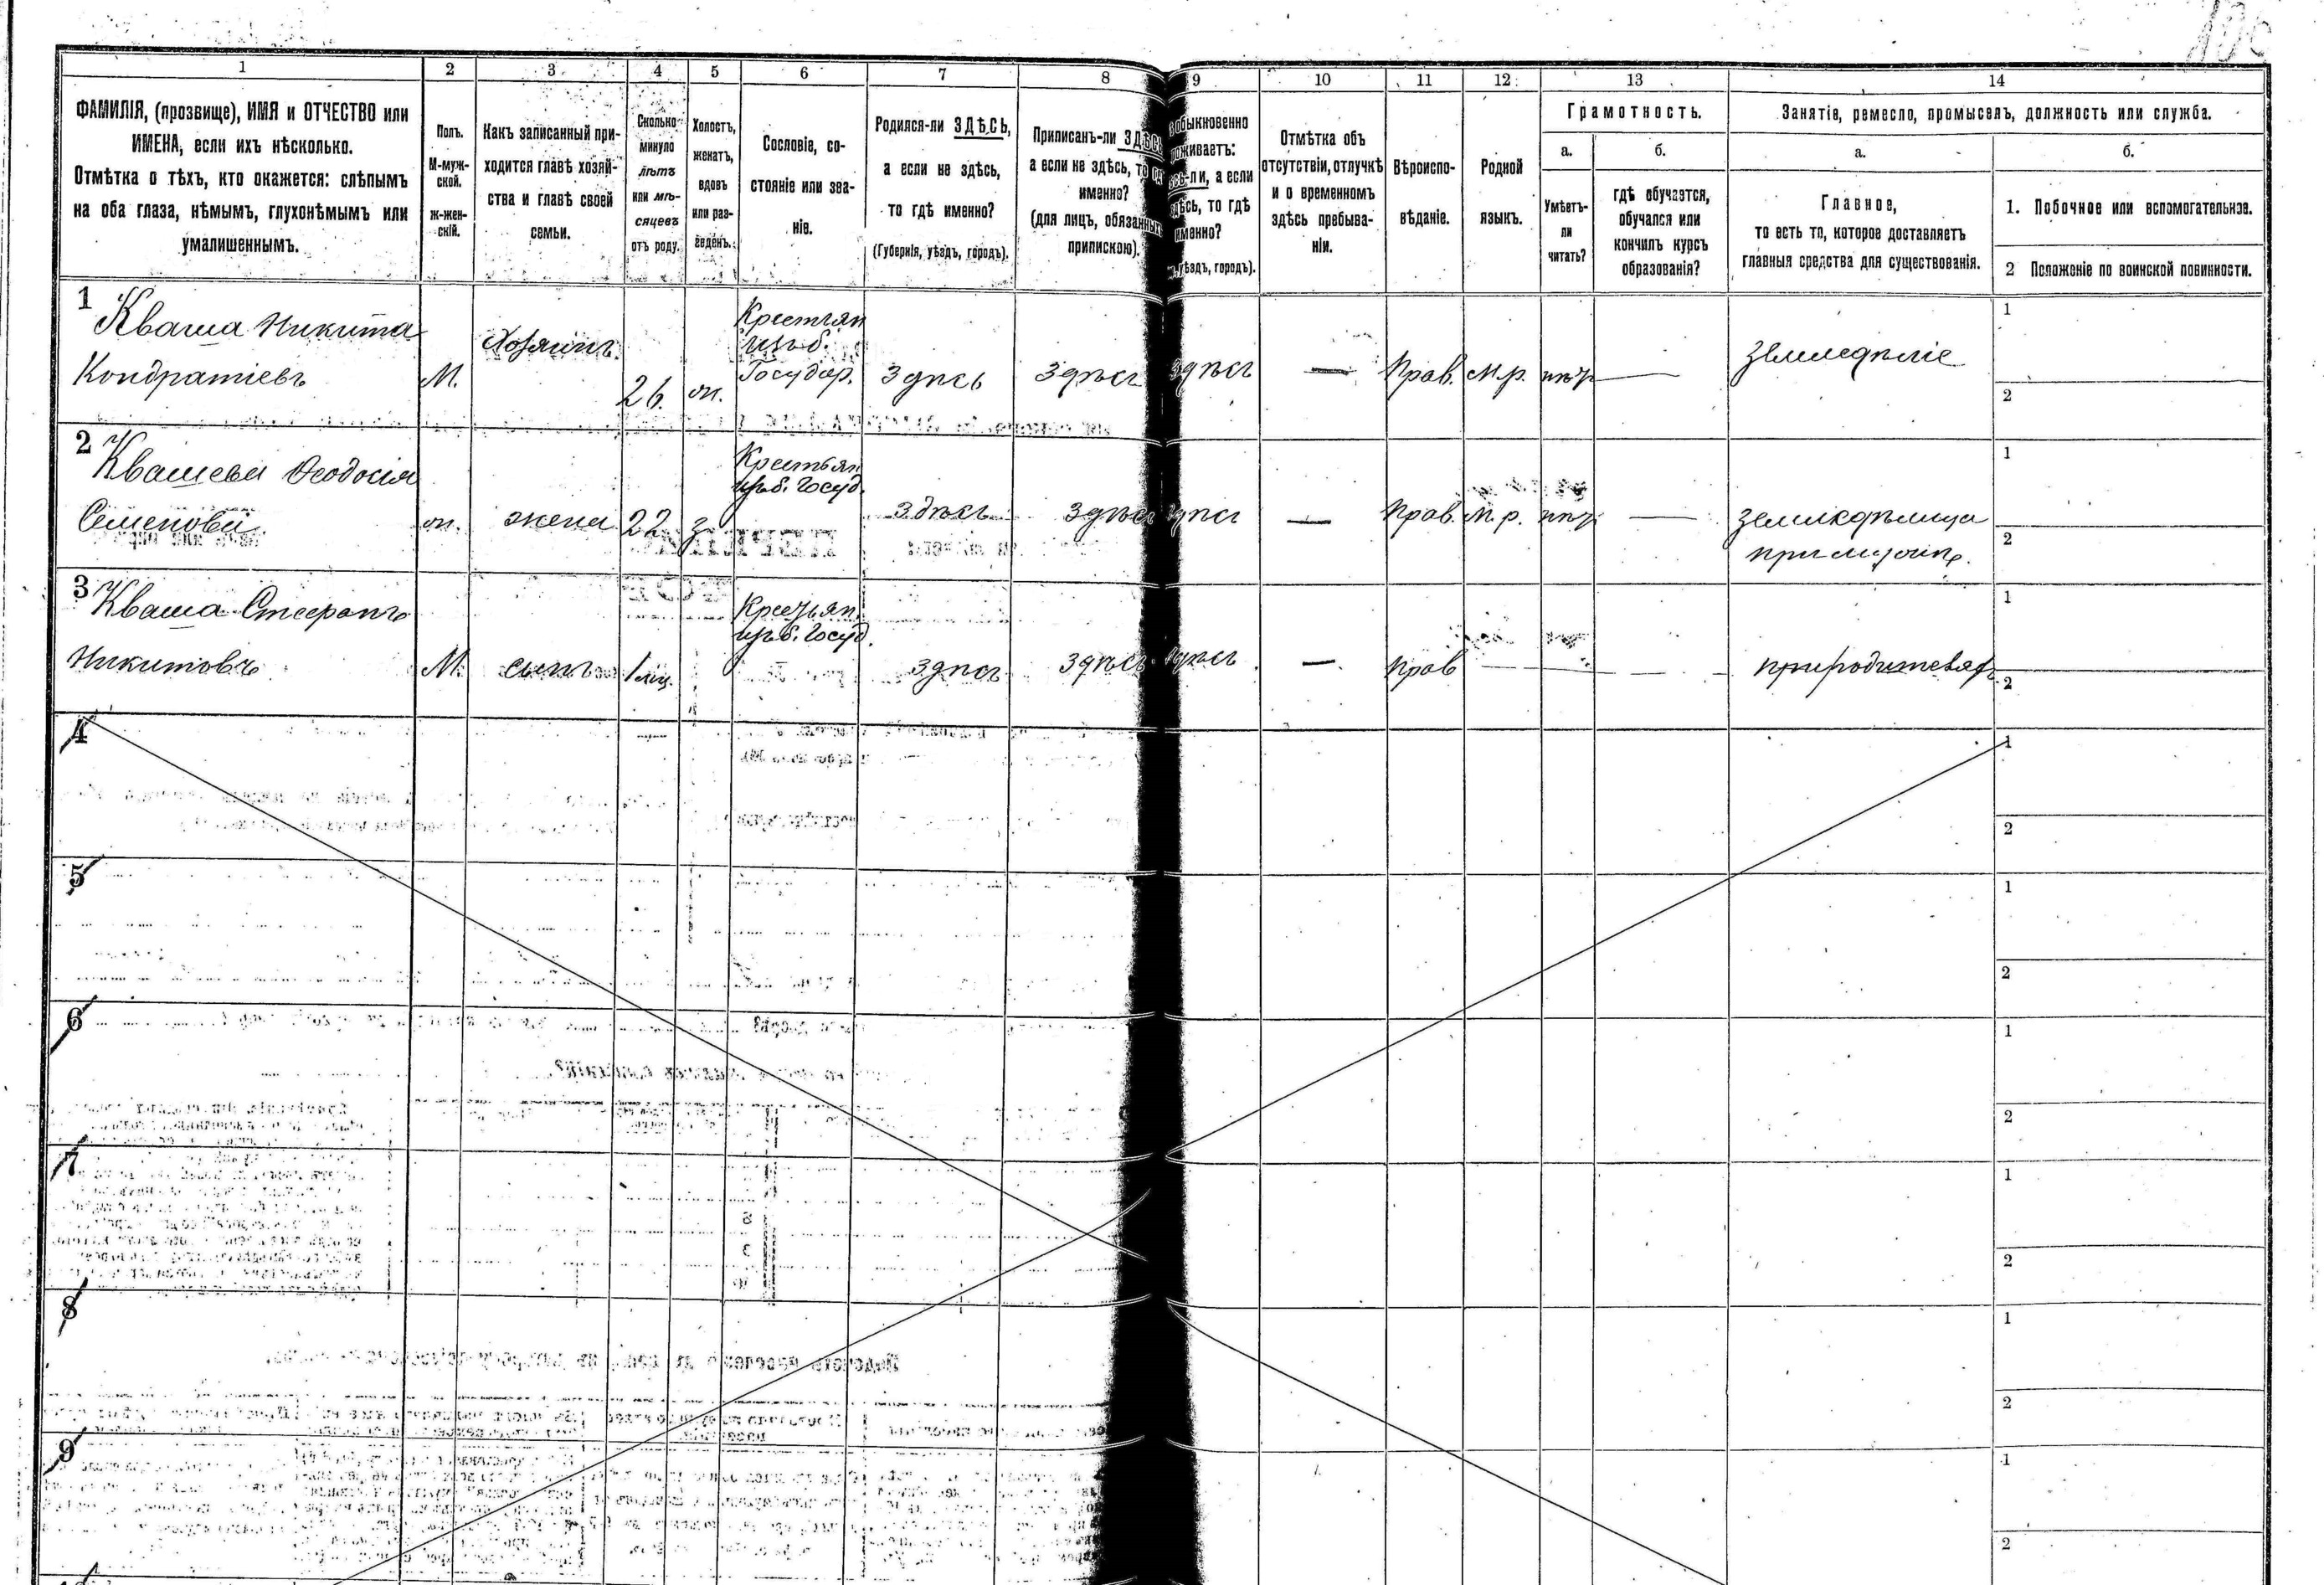 1 2 3 4 5 6 7 8 9 10 11 12 13 14
ФАМИЛІЯ, (прозвище), ИМЯ и ОТЧЕСТВО или
ИМЕНА, если ихъ нѣсколько.
Отмѣтка о тѣхъ, кто окажется: слѣпымъ
на оба глаза, нѣмымъ, глухонѣмымъ или
умалишеннымъ.
Полъ.
М-муж-
ской.
ж-жен-
скій.
Какъ записанный при-
ходится главѣ хозяй-
ства и главѣ своей
семьи.
Сколько
минуло
лѣтъ
или мѣ-
сяцевъ
отъ роду.
Холостъ,
женатъ,
вдовъ
или раз-
веденъ.
Сословіе, со-
стояніе или зва-
ніе.
Родился-ли ЗДѢСЬ,
а если не здѣсь,
то гдѣ именно?
(Губернія, уѣздъ, городъ).
Приписанъ-ли ЗДѢСЬ
а если не здѣсь, то
именно?
(для лицъ, обязанныхъ
припискою).
обыкновенно
проживаетъ:
а если
здѣсь, то гдѣ
именно?
уѣздъ, городъ).
Отмѣтка объ
отсутствіи, отлучкѣ
и о временномъ
здѣсь пребыва-
ніи.
Вѣроиспо-
вѣданіе.
Родной
языкъ.
Грамотность.
а.
Умѣетъ-
ли
читать?
б.
гдѣ обучается,
обучался или
кончилъ курсъ
образованія?
Занятіе, ремесло, промыселъ, должность или служба.
а.
Главное,
то есть то, которое доставляетъ
главныя средства для существованія.
б.
1. Побочное или вспомогательное.
2 Положеніе по воинской повинности.
1 Кваша Никита
Кондратіевъ
М.
Хозяинъ
26.
ж.
Крестьян
изъ б.
Государ.
Здѣсь
Здѣсь
здѣсь
—
Прав.
М.р.
нѣт
—
Земледѣліе
1
2
2 Квашева Ѳеодосія
Семенова
ж.
жена
22
з
Крестьян
изъ б. Госуд.
Здѣсь
Здѣсь
здѣсь
—
Прав.
М.р.
нѣт
—
1
2
3 Кваша Стефанъ
Никитовъ
М.
сынъ
1 мѣс.
Крестьян.
изъ б. Госуд.
Здѣсь
Здѣсь
здѣсь
—
Прав
—
—
—
при родителях
1
2
4
1
2
5
1
2
6
1
2
7
1
2
8
1
2
9
1
2